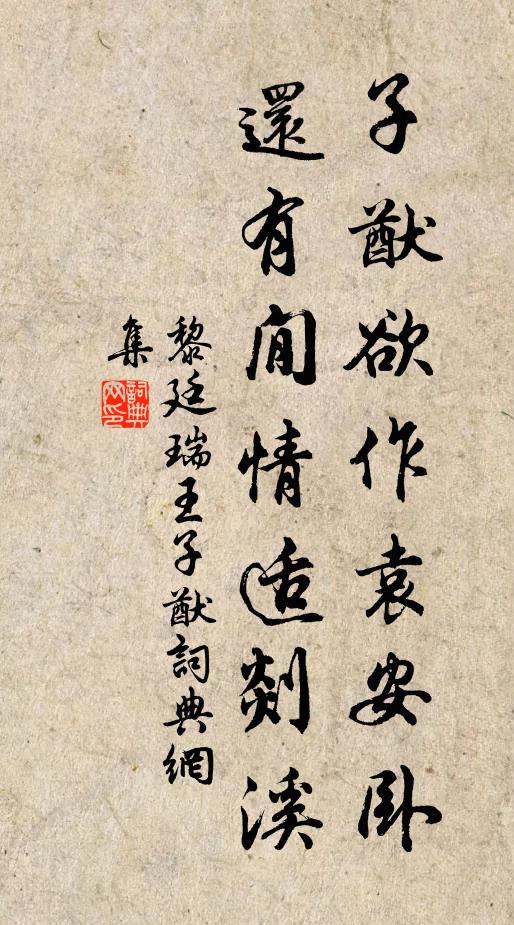 子猷欲作袁安卧
還有閒情适剡溪
黎廷瑞王子猷詞典網
集
詞典網印